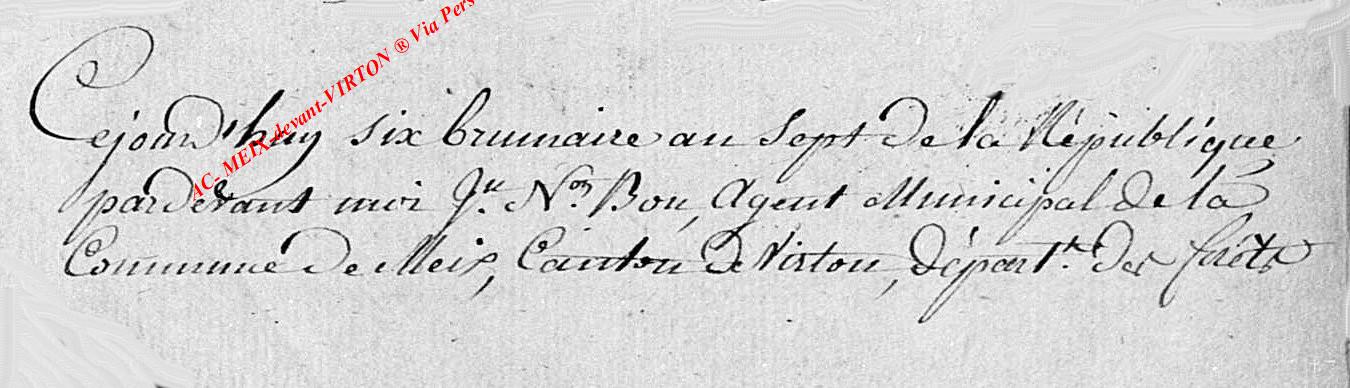 AC- MEIX-devant-VIRTON ® Via Pers
Cejourd'huy six brumaire an sept de la République
pardevant moi Jn. Nas Bon, Agent Municipal de la
Commune de Meix, Canton de Virton, départt. des forêts